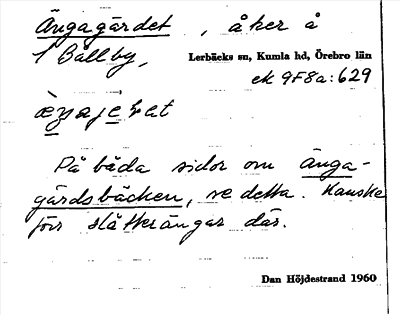 Ängagärdet, åker å
1 Bållby, Lerbäcks sn, Kumla hd, Örebro län
ek 9F8a:629
På båda sidor om Änga-
gärdsbäcken, se detta. Kanske
förr slåtterängar där.
Dan Höjdestrand 1960